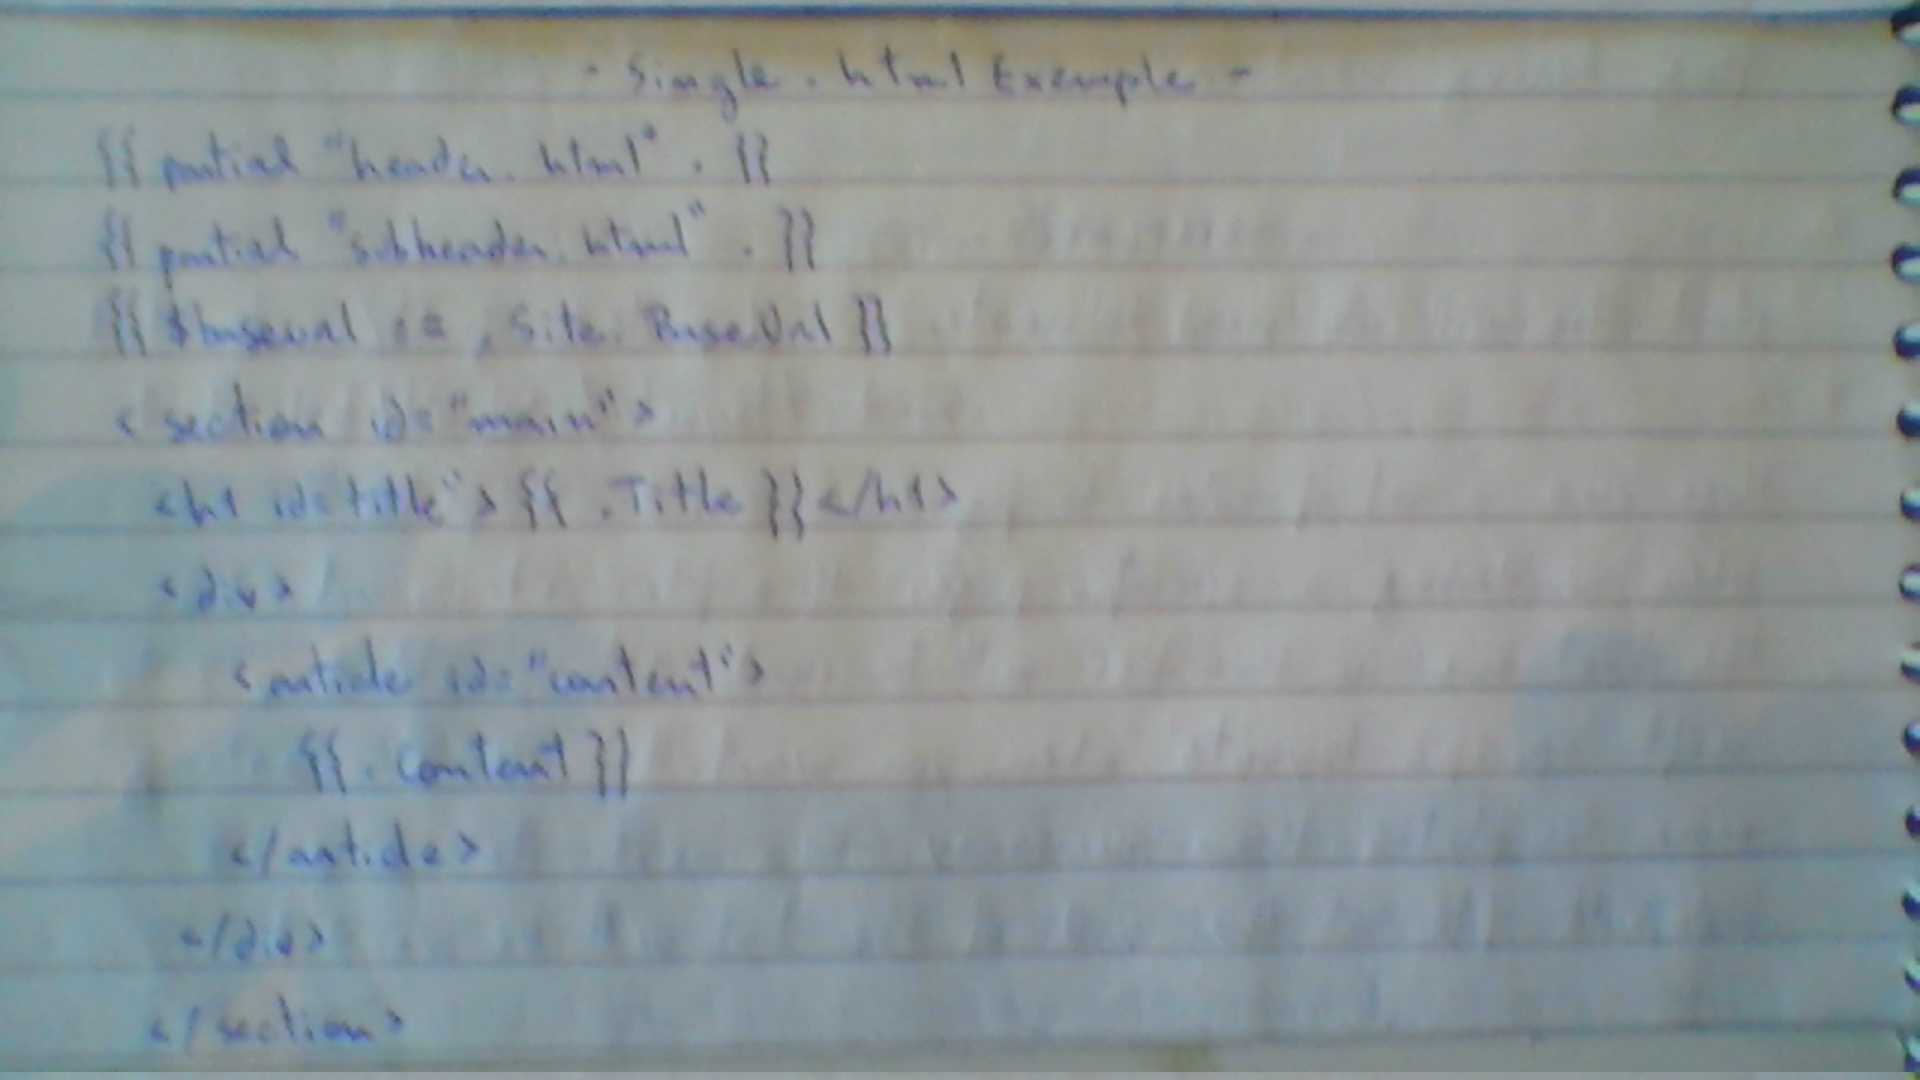 - Single.html Exemple -
{{ partial "header.html" . }}
{{ partial "subheader.html" . }}
{{ $baseurl := .Site.BaseUrl }}
<section id="main">
<h1 id=title"> {{ .Title }}</h1>
<div>
<article id="content">
{{ .Content }}
</article>
</div>
</section>